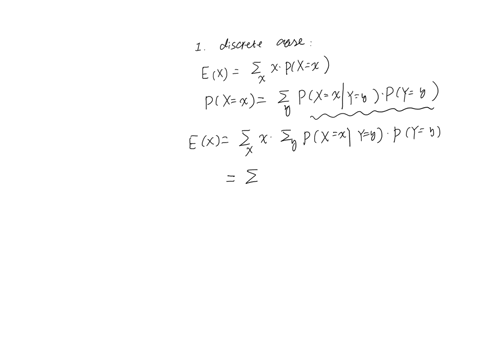 1. discrete case:
E(X) = Σ_x x·P(X=x)
P(X=x) = Σ_y P(X=x|Y=y)·P(Y=y)
E(X) = Σ_x x· Σ_y P(X=x|Y=y)·P(Y=y)
= Σ